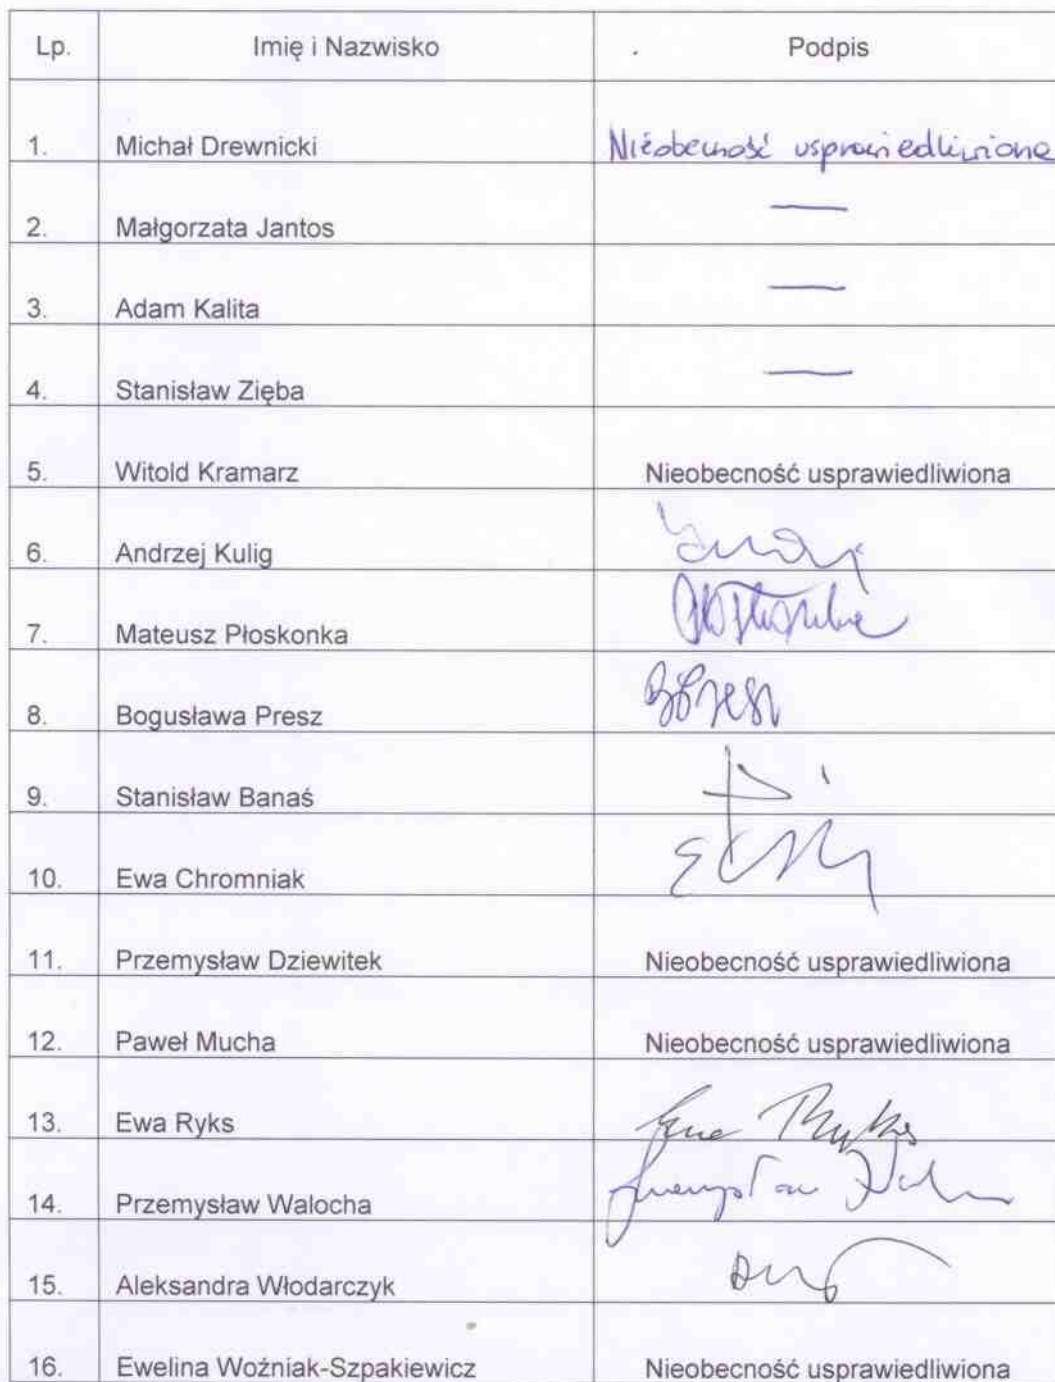 Lp. Imię i Nazwisko Podpis
1. Michał Drewnicki Nieobecność usprawiedliwiona
2. Małgorzata Jantos —
3. Adam Kalita —
4. Stanisław Zięba —
5. Witold Kramarz Nieobecność usprawiedliwiona
6. Andrzej Kulig
7. Mateusz Płoskonka
8. Bogusława Presz
9. Stanisław Banaś
10. Ewa Chromniak
11. Przemysław Dziewitek Nieobecność usprawiedliwiona
12. Paweł Mucha Nieobecność usprawiedliwiona
13. Ewa Ryks Ewa Ryks
14. Przemysław Walocha Przemysław
15. Aleksandra Włodarczyk
16. Ewelina Woźniak-Szpakiewicz Nieobecność usprawiedliwiona